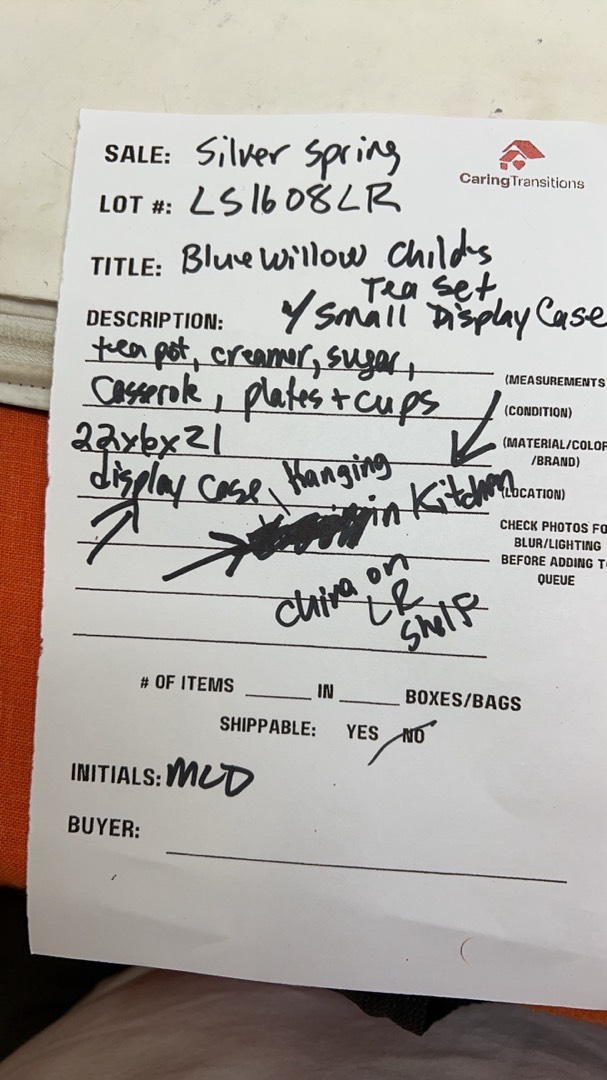 SALE: Silver Spring
CaringTransitions
LOT #: LS1608LR
TITLE: Blue Willow Childs
Tea Set
DESCRIPTION: / Small Display Case
tea pot, creamer, sugar,
(MEASUREMENTS
Casserole, plates + cups
(CONDITION)
22x6x21
(MATERIAL/COLOR
/BRAND)
display case, Hanging
in Kitchen
(LOCATION)
CHECK PHOTOS FO
BLUR/LIGHTING
BEFORE ADDING T
QUEUE
China on
LR
Shelf
# OF ITEMS ______ IN ______ BOXES/BAGS
SHIPPABLE: YES NO
INITIALS: MCD
BUYER: